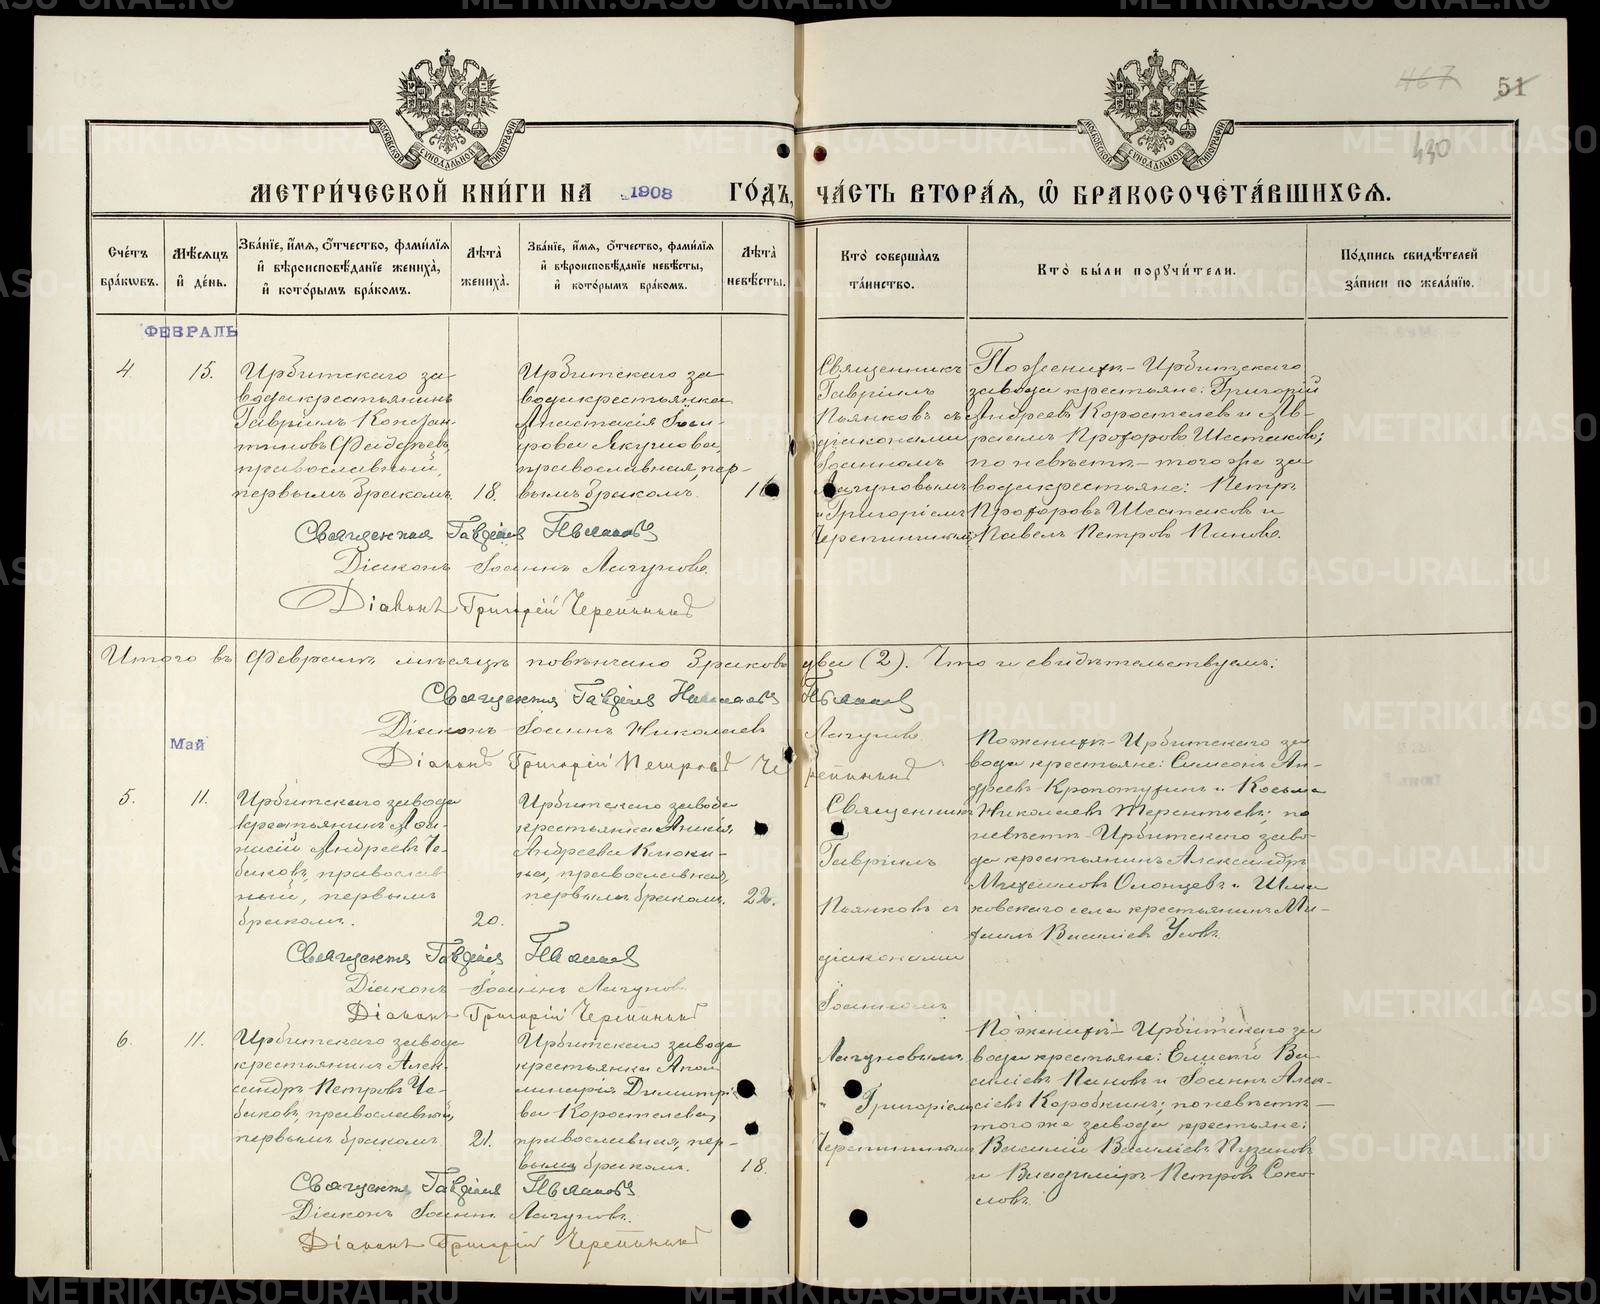 467 51
430
МЕТРИ́ЧЕСКОЙ КНИ́ГИ НА 1908 ГО́ДЪ, ЧА́СТЬ ВТОРА́Я, Ѡ҆ БРАКОСОЧЕТА́ВШИХСЯ.
Сче́тъ бра́кѡвъ.
Мѣ́сяцъ и҆ де́нь.
Зва́нїе, и҆́мя, ѻ҆́тчество, фами́лїя и҆ вѣроисповѣ́данїе жениха̀, и҆ кото́рымъ бра́комъ.
Лѣ́та̀ жениха̀.
Зва́нїе, и҆́мя, ѻ҆́тчество, фами́лїя и҆ вѣроисповѣ́данїе невѣ́сты, и҆ кото́рымъ бра́комъ.
Лѣ́та̀ невѣ́сты.
Кто̀ соверша́лъ та́инство.
Кто̀ бы́ли порꙋчи́тели.
По́дпись свидѣ́телей за́писи по жела́нїю.
ФЕВРАЛЬ
4
15.
Ирбитскаго за-
вода крестьянинъ
Гавріилъ Констан-
тиновъ
православный,
первымъ бракомъ
18.
Ирбитскаго за
вода крестьянка
Анастасія
рова Якушова,
православная, пер-
вымъ бракомъ
Священникъ
Гавріилъ
Пьянковъ съ
діаконами
Іоанномъ
Лагуновымъ
и Григоріемъ
По женихѣ - Ирбитскаго
завода крестьяне: Григорій
Андреевъ Коростелевъ и Ав-
раамъ Прохоровъ Шестаковъ;
по невѣстѣ - того же за
вода крестьяне: Петръ
Прохоровъ Шестаковъ и
Павелъ Петровъ Пановъ.
Священникъ Гавріилъ Пьянковъ
Діаконъ Іоаннъ Лагуновъ.
Діаконъ Григорій
Итого въ Февралѣ мѣсяцѣ повѣнчано браковъ два (2). Что и свидѣтельствуемъ:
Священникъ Гавріилъ Николаевъ Пьянковъ
Діаконъ Іоаннъ Николаевъ Лагуновъ
Діаконъ Григорій Петровъ
Май
5.
11.
Ирбитскаго завода
крестьянинъ
Андреевъ Че-
баковъ, православ
ный, первымъ
бракомъ.
20.
Ирбитскаго завода
крестьянка Анисія
Андреева Клюки-
на, православная,
первымъ бракомъ.
22.
Священникъ
Гавріилъ
Пьянковъ съ
діаконами
Іоанномъ
По женихѣ - Ирбитскаго за
вода крестьяне: Симеонъ Ан-
дреевъ Кропотухинъ и Косьма
Николаевъ Терентьевъ; по
невѣстѣ - Ирбитскаго заво-
да крестьянинъ Александръ
Михаиловъ Олонцевъ и Шма
ковскаго села крестьянинъ Ми-
хаилъ Василіевъ Усовъ.
Священникъ Гавріилъ Пьянковъ
Діаконъ Іоаннъ Лагуновъ
Діаконъ Григорій
6.
11.
Ирбитскаго завода
крестьянинъ Алек-
сандръ Петровъ Че-
баковъ, православный,
первымъ бракомъ
21.
Ирбитскаго завода
крестьянка Апол
линарія Димитрі-
ева Коростелева,
православная, пер-
вымъ бракомъ.
18.
Лагуновымъ
и Григоріемъ
По женихѣ - Ирбитскаго за
вода крестьяне: Елисей Ва-
силіевъ Пановъ и Іоаннъ Алек-
сіевъ Коробкинъ; по невѣстѣ -
того же завода крестьяне:
Василій Василіевъ Пузановъ
и Владиміръ Петровъ Соко-
ловъ.
Священникъ Гавріилъ Пьянковъ
Діаконъ Іоаннъ Лагуновъ.
Діаконъ Григорій
METRIKI.GASO-URAL.RU